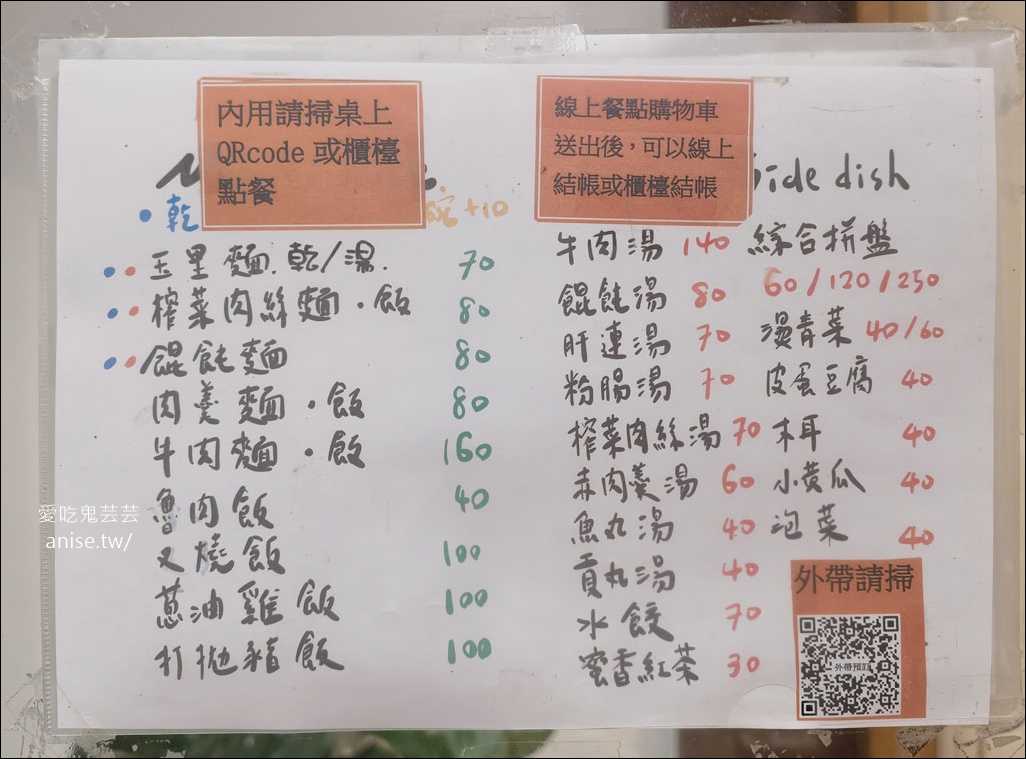 內用請掃桌上
QRcode 或櫃檯
點餐
線上餐點購物車
送出後，可以線上
結帳或櫃檯結帳
side dish
• 乾
碗 +10
玉里麵.乾/湯. 70
榨菜肉絲麵•飯 80
餛飩麵 80
肉羹麵•飯 80
牛肉麵•飯 160
魯肉飯 40
叉燒飯 100
蔥油雞飯 100
打拋豬飯 100
牛肉湯 140
餛飩湯 80
肝連湯 70
粉腸湯 70
榨菜肉絲湯 70
赤肉羹湯 60
魚丸湯 40
貢丸湯 40
水餃 70
蜜香紅茶 30
綜合拼盤
60/120/250
燙青菜 40/60
皮蛋豆腐 40
木耳 40
小黃瓜 40
泡菜 40
外帶請掃
外帶預訂
愛吃鬼芸芸
anise.tw/